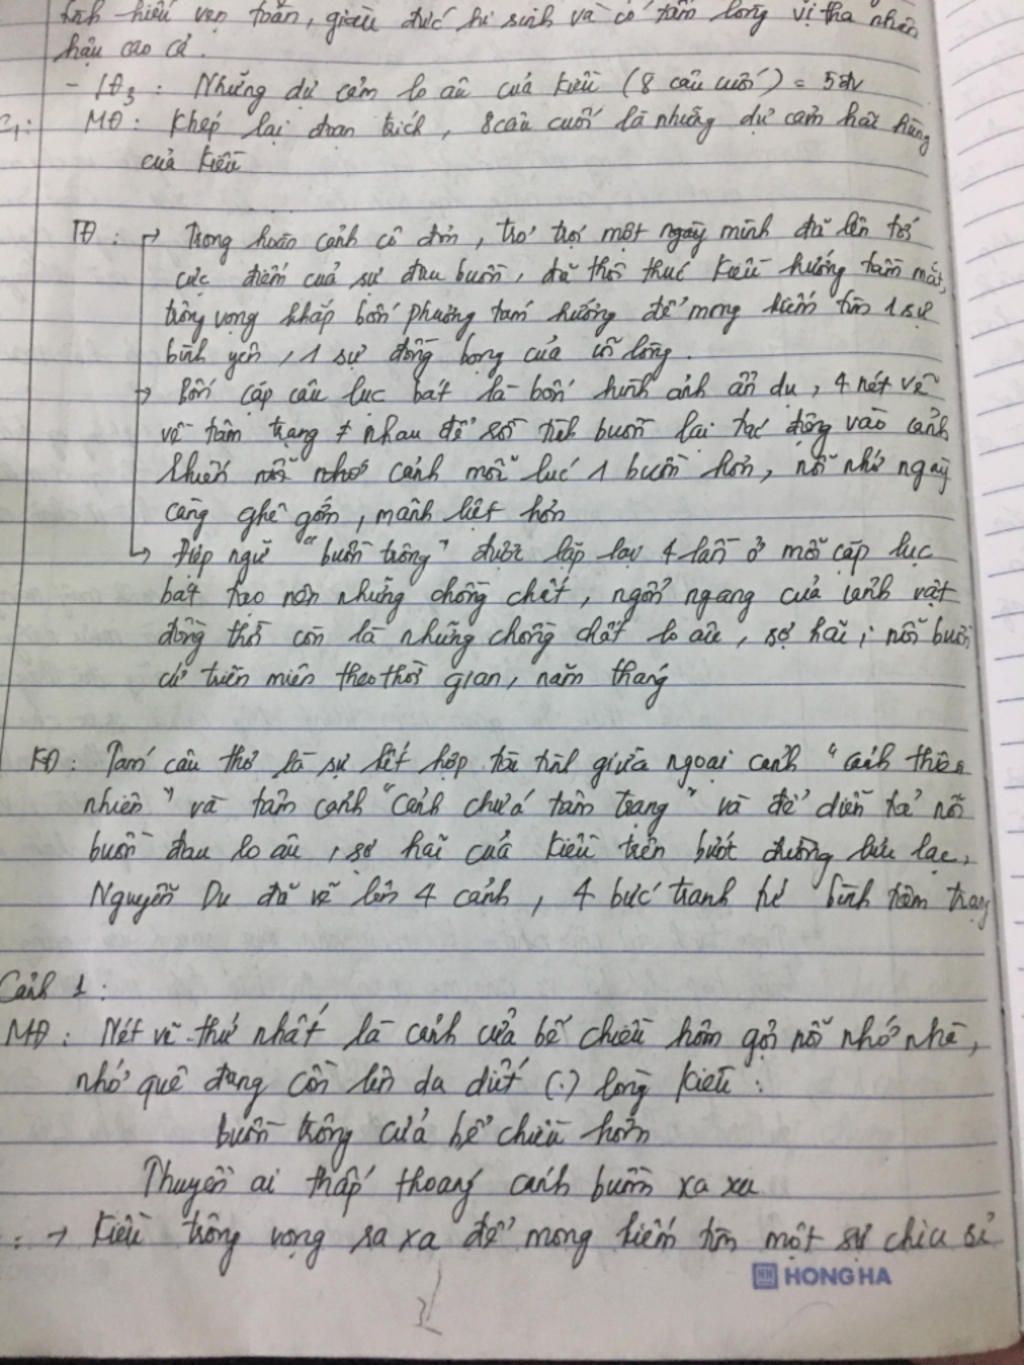 tình hiếu vẹn toàn, giàu đức hi sinh và có tấm lòng vị tha nhân
hậu cao cả.
- LĐ3: Những dự cảm lo âu của Kiều (8 câu cuối) =
MĐ: Khép lại đoạn trích, 8 câu cuối là những dự cảm hãi hùng
của Kiều
TĐ: → Trong hoàn cảnh cô đơn, trơ trọi một ngày mình đã lên tới
cực điểm của sự đau buồn, đã thôi thúc Kiều hướng tầm mắt,
trông vọng khắp bốn phương tám hướng để mong kiếm tìm 1 sự
bình yên, 1 sự đồng vọng của cõi lòng.
→ Bốn cặp câu lục bát là bốn hình ảnh ẩn dụ, 4 nét vẽ
về tâm trạng ≠ nhau để rồi tình buồn lại tác động vào cảnh
khiến cảnh mỗi lúc 1 buồn hơn, nỗi nhớ ngày
càng ghê gớm, mãnh liệt hơn
→ Điệp ngữ "buồn trông" được lặp lại 4 lần ở mỗi cặp lục
bát tạo nên những chồng chất, ngổn ngang của cảnh vật
đồng thời còn là những chồng chất lo âu, sợ hãi, nỗi buồn
cứ triền miên theo thời gian, năm tháng
KĐ: Tám câu thơ là sự kết hợp tài tình giữa ngoại cảnh "cảnh thiên
nhiên" và tâm cảnh "cảnh chứa tâm trạng" và để diễn tả nỗi
buồn đau lo âu, sợ hãi của Kiều trên bước đường lưu lạc,
Nguyễn Du đã vẽ lên 4 cảnh, 4 bức tranh tứ bình tâm trạng
Cảnh 1:
MĐ: Nét vẽ thứ nhất là cảnh cửa bể chiều hôm gợi nỗi nhớ nhà,
nhớ quê đang cồn lên da diết (.) lòng Kiều:
buồn trông cửa bể chiều hôm
Thuyền ai thấp thoáng cánh buồm xa xa
: → Kiều trông vọng ra xa để mong kiếm tìm một sự chia sẻ
HONG HA